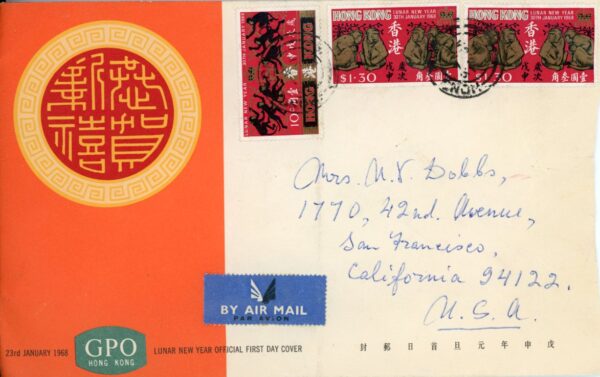 恭賀新禧
LUNAR NEW YEAR 30TH JANUARY 1968
歲次戊申
香港
HONG KONG
10c
壹角
HONG KONG
LUNAR NEW YEAR
30TH JANUARY 1968
香港
歲次
戊申
$1·30
壹圓叁角
HONG KONG
LUNAR NEW YEAR
30TH JANUARY 1968
香港
歲次
戊申
$1·30
壹圓叁角
Mrs. N. V. Dobbs,
1770, 42nd. Avenue,
San Francisco,
California 94122.
U.S.A.
BY AIR MAIL
PAR AVION
23rd JANUARY 1968
GPO
HONG KONG
LUNAR NEW YEAR OFFICIAL FIRST DAY COVER
封郵日首旦元年申戊